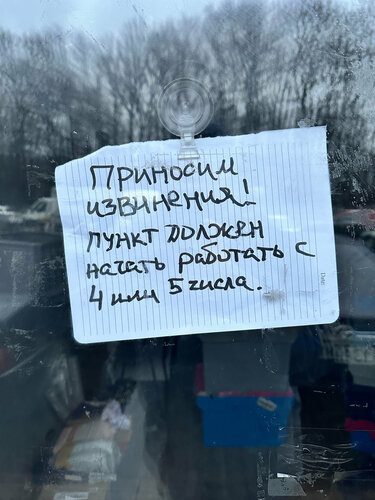 Приносим
извинения!
пункт должен
начать работать с
4 или 5 числа.
Date: